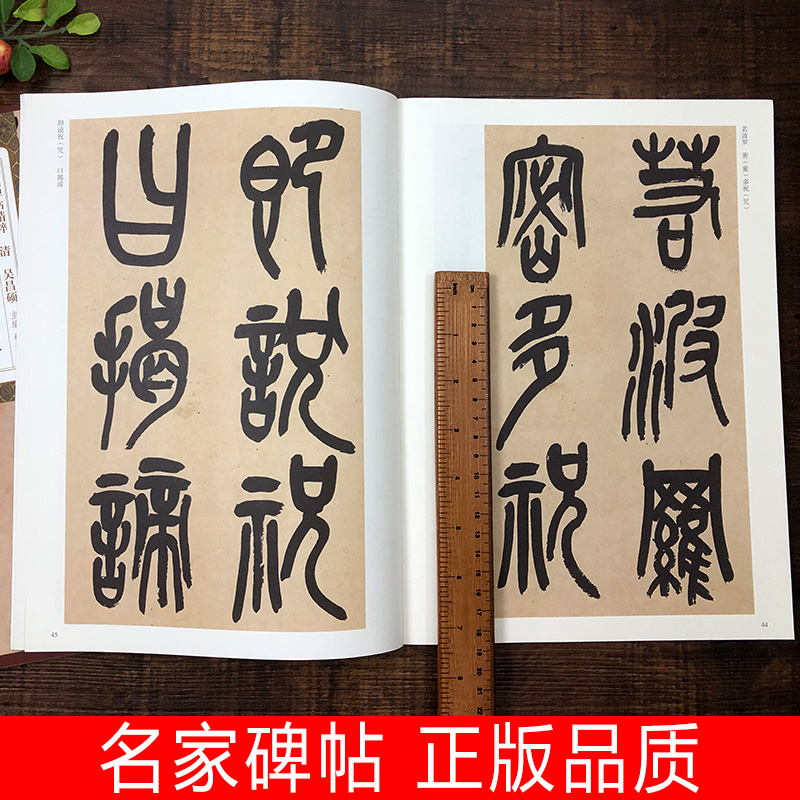 若波罗 密（蜜）多祝（咒）
若波羅
密多祝
44
即說祝
曰揭諦
即说祝（咒） 曰揭谛
45
清 吴昌硕
名家碑帖 正版品质